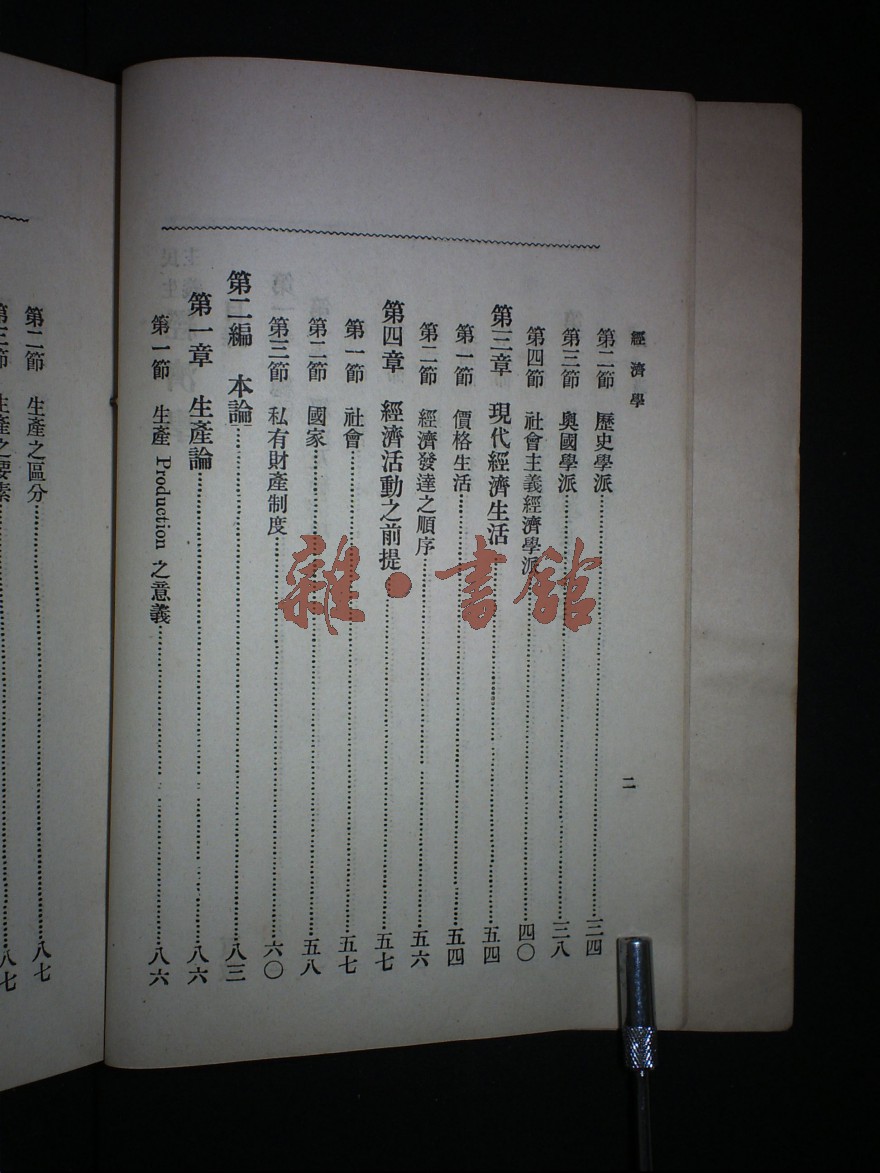 經濟學
二
第二節 歷史學派……三四
第三節 奧國學派……三八
第四節 社會主義經濟學派……四〇
第三章 現代經濟生活……五四
第一節 價格生活……五四
第二節 經濟發達之順序……五六
第四章 經濟活動之前提……五七
第一節 社會……五七
第二節 國家……五八
第三節 私有財產制度……六〇
第二編 本論……八三
第一章 生產論……八六
第一節 生產 Production 之意義……八六
第二節 生產之區分……八七
第三節 生產之要素……八七
雜·書館